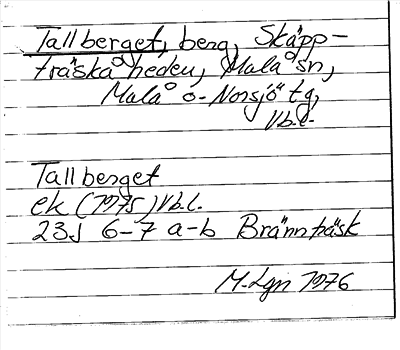 Tallberget, berg, Skäpp-
träskåheden, Malå sn,
Malå o. Norsjö tg,
Vb.l.
Tallberget
ek (1975) Vb.l.
23J 6-7 a-b Brännträsk
M. Lgn 1976